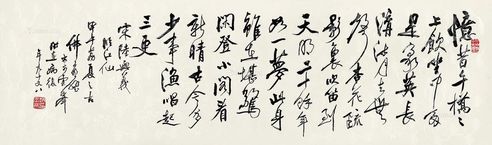 憶昔午橋〻
上飲坐中多
是豪英長
溝流月去無
聲杏花疏
影裏吹笛到
天明二十餘年
如一夢此身
雖在堪驚
閑登小閣看
新晴古今多
少事漁唱起
三更
宋 與義
臨江仙
甲午